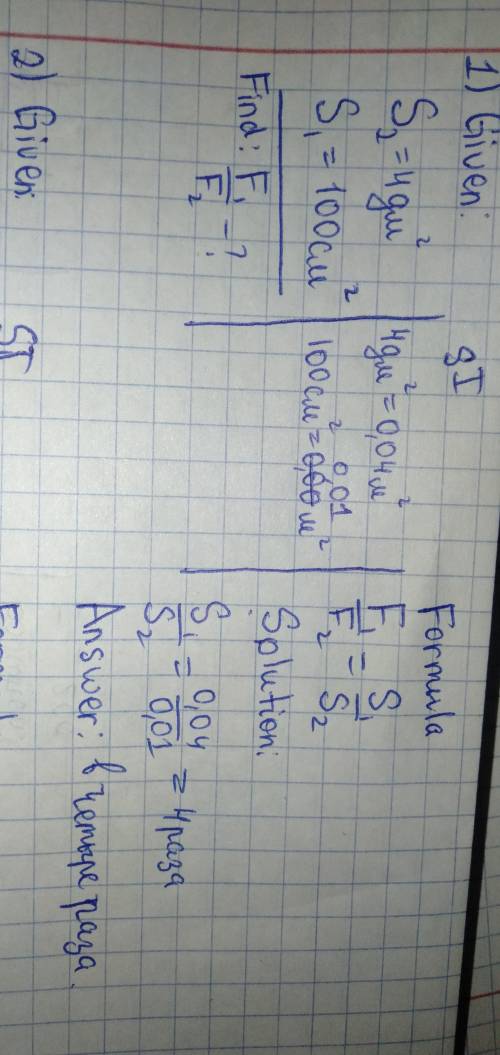 1) Given:
S₂ = 4дм²
S₁ = 100см²
Find: F₁/F₂ - ?
SI
4дм² = 0,04м²
100см² = 0,01м²
Formula
F₁/F₂ = S₁/S₂
Solution:
S₁/S₂ = 0,04/0,01 = 4 раза
Answer: в четыре раза.
2) Given:
SI